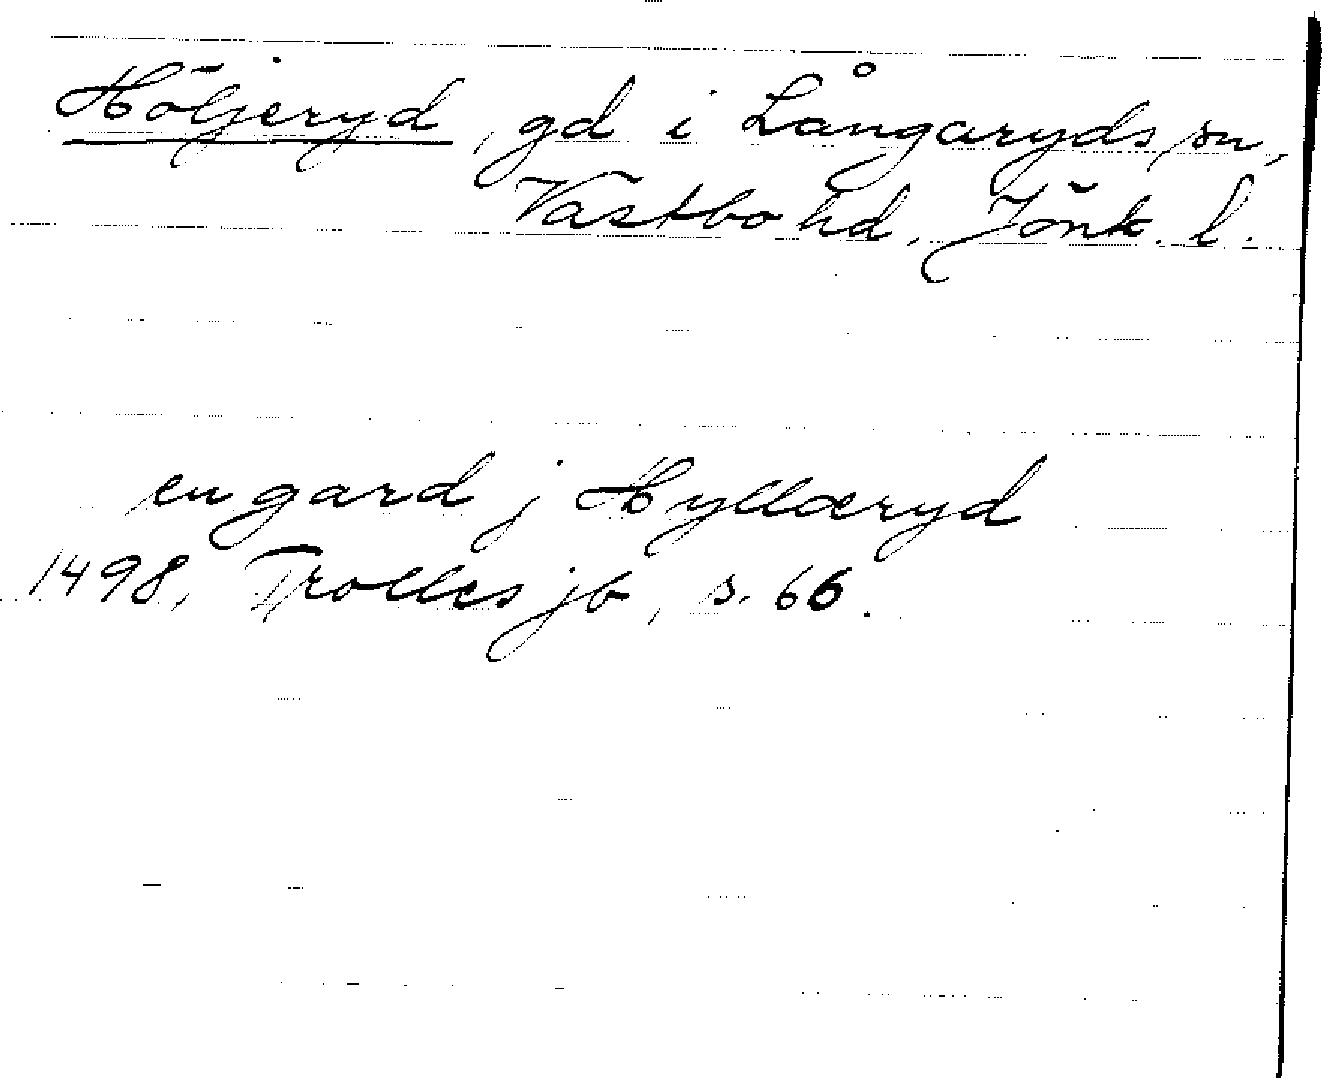 Höljeryd, gd i Långaryds sn,
Västbo hd, Jönk. l.
en gard j Hyllæryd
1498, Trolles jb, s. 66.